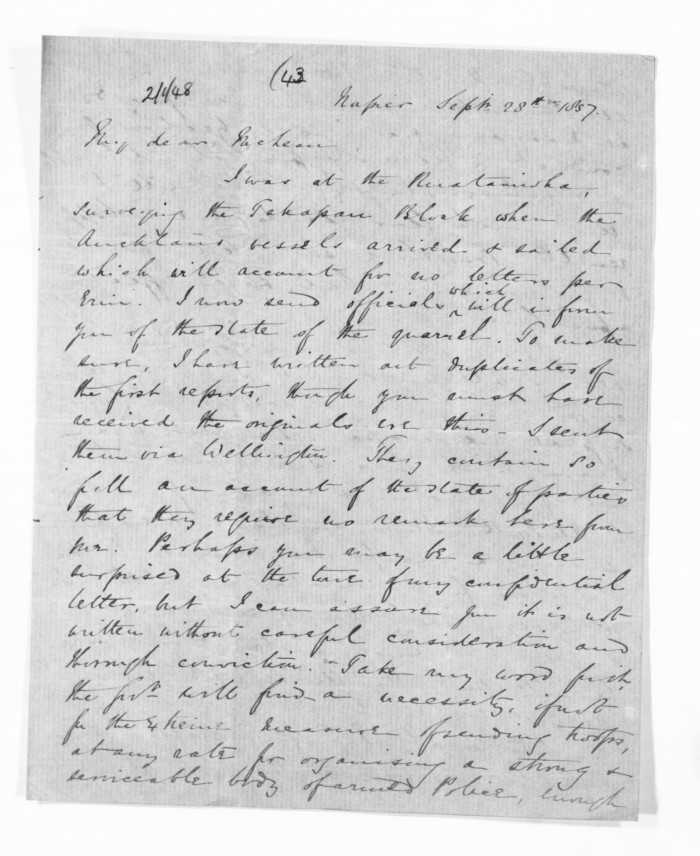 2/1/48
(43
Napier Septr. 28th 1857.
My dear McLean
I was at the Ruataniwha,
surveying the Tekapau Block when the
Auckland vessels arrived & sailed
which will account for no letters per
Erin. I now send officials which will inform
you of the state of the quarrel. To make
sure, I have written out duplicates of
the first reports, though you must have
received the originals ere this. I sent
them via Wellington. They contain so
full an account of the state of parties
that they require no remark here from
me. Perhaps you may be a little
surprised at the tone of my confidential
letter, but I can assure you it is not
written without careful consideration and
thorough conviction. Take my word for it,
the Govt. will find a necessity, if not
for the extreme measure of sending troops,
at any rate for organising a strong &
serviceable body of armed Police, enough